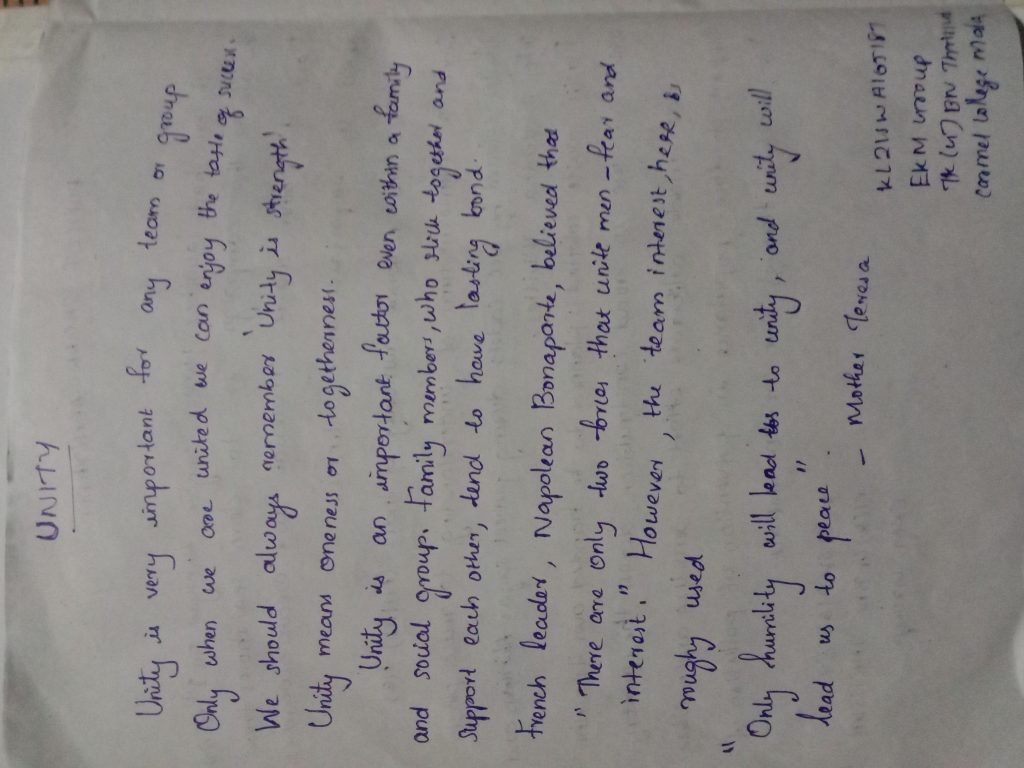 UNITY
Unity is very important for any team or group
Only when we are united we can enjoy the taste of success.
We should always remember 'Unity is strength'.
Unity means oneness or togetherness.
Unity is an important factor even within a family
and social group. Family members, who stick together and
support each other, tend to have lasting bond.
French leader, Napolean Bonaparte, believed that
"There are only two forces that unite men - fear and
interest." However, the team interest here, is
roughy used
"Only humility will lead us to unity, and unity will
lead us to peace"
- Mother Teresa
KL21SWA107187
EKM Group
7K (W) BN
Carmel College Mala